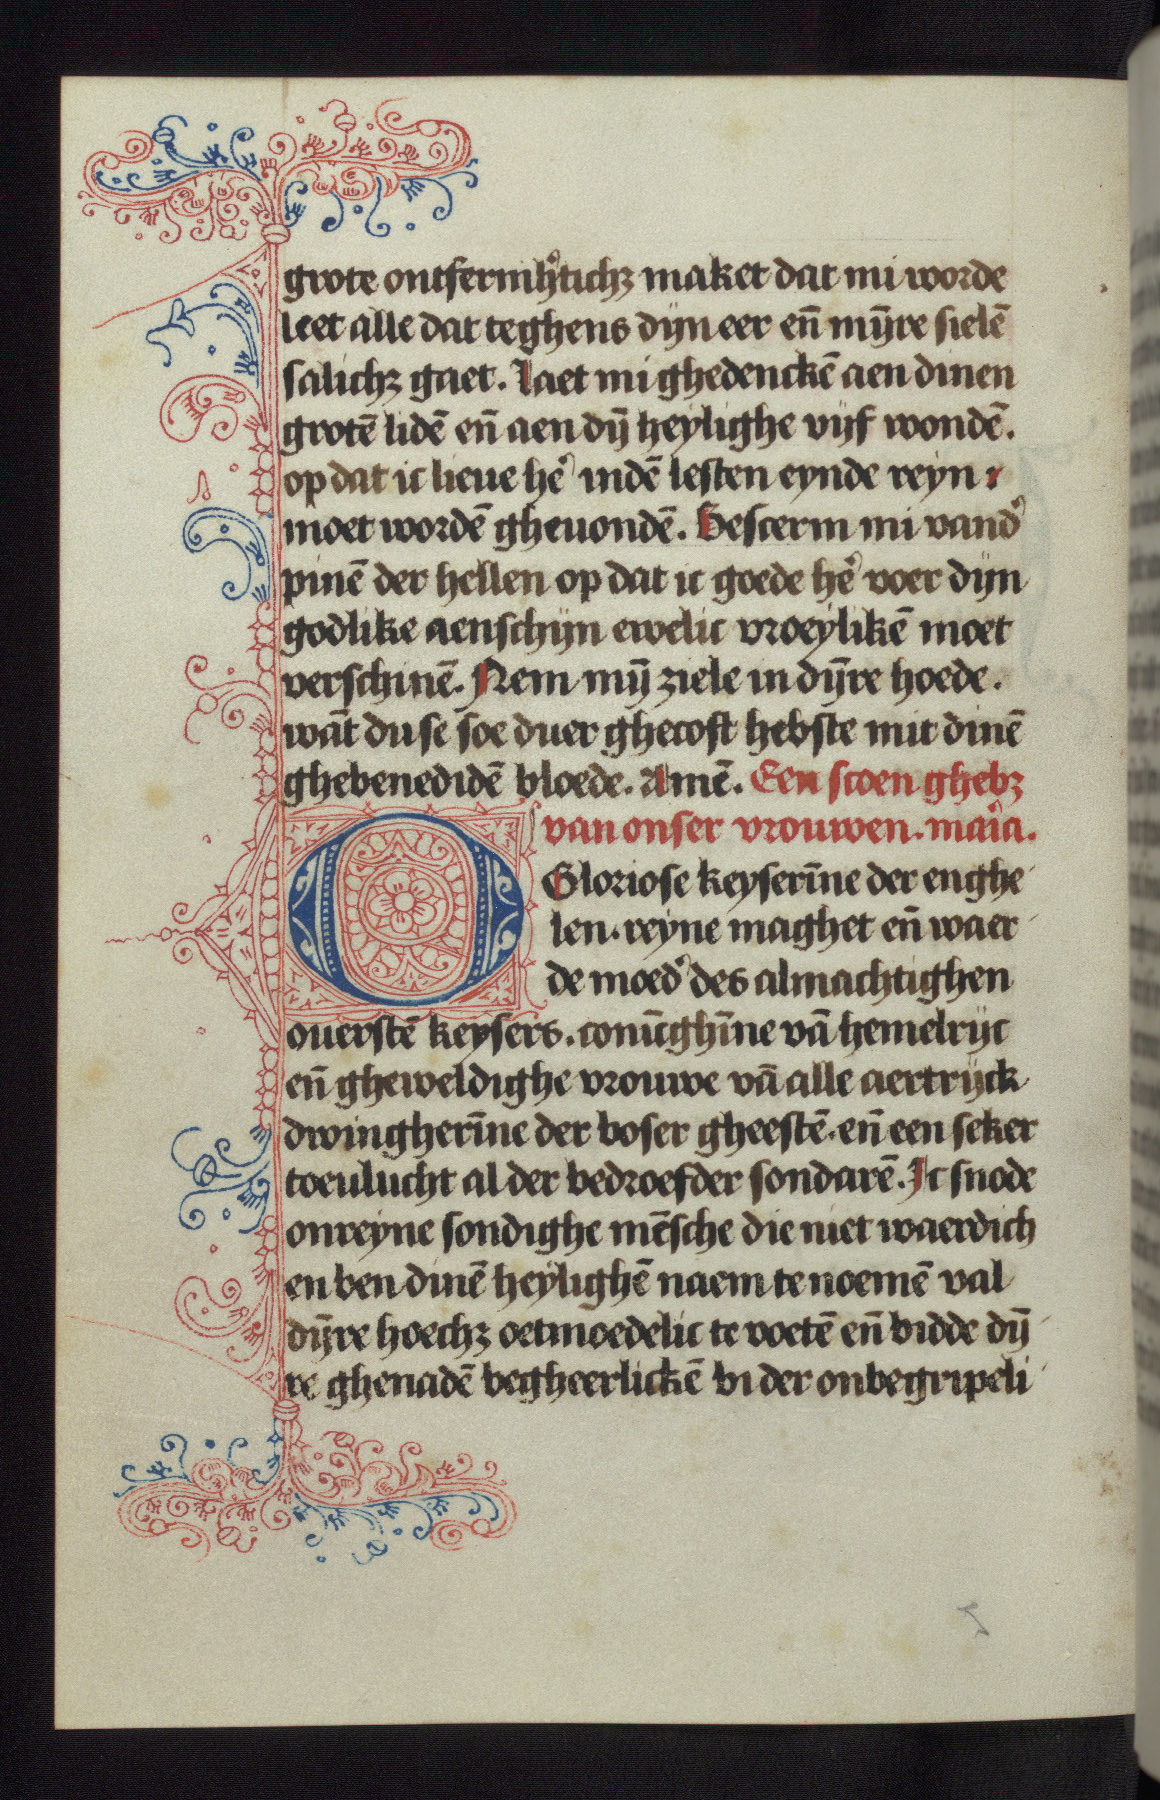 grote ontfermh᷒tichꝫ maket dat mi worde
leet alle dat teghens dyn eer en̄ mȳre sielē
salichꝫ gaet. Laet mi ghedenckē aen dinen
grotē lidē en̄ aen dȳ heylighe vyf wondē.
op dat ic lieue hē᷒ indē lesten eynde reyn
moet wordē gheuondē. Bescerm mi vand᷒
pinē der hellen op dat ic goede hē᷒ voer dyn
godlike aenschijn ewelic vroeylikē moet
verschinē. Nem mȳ ziele in dȳre hoede.
wāt du se soe duer ghecoft hebste mit dinē
ghebenedidē bloede. Amē. Een scoen ghebꝫ
van onser vrouwen. maīa.
O Gloriose keyserīne der enghe
len. reyne maghet en̄ waer
de moed᷒ des almachtighen
ouerstē keysers. conīghīne vā hemelryc
en̄ gheweldighe vrouwe vā alle aertryck
dwingherīne der boser gheestē. en̄ een seker
toeulucht al der bedroefder sondarē. Ic snode
onreyne sondighe mēsche die niet waerdich
en ben dinē heylighē naem te noemē val
dȳre hoechꝫ oetmoedelic te voetē en̄ bidde dȳ
re ghenadē begheerlickē bi der onbegripeli